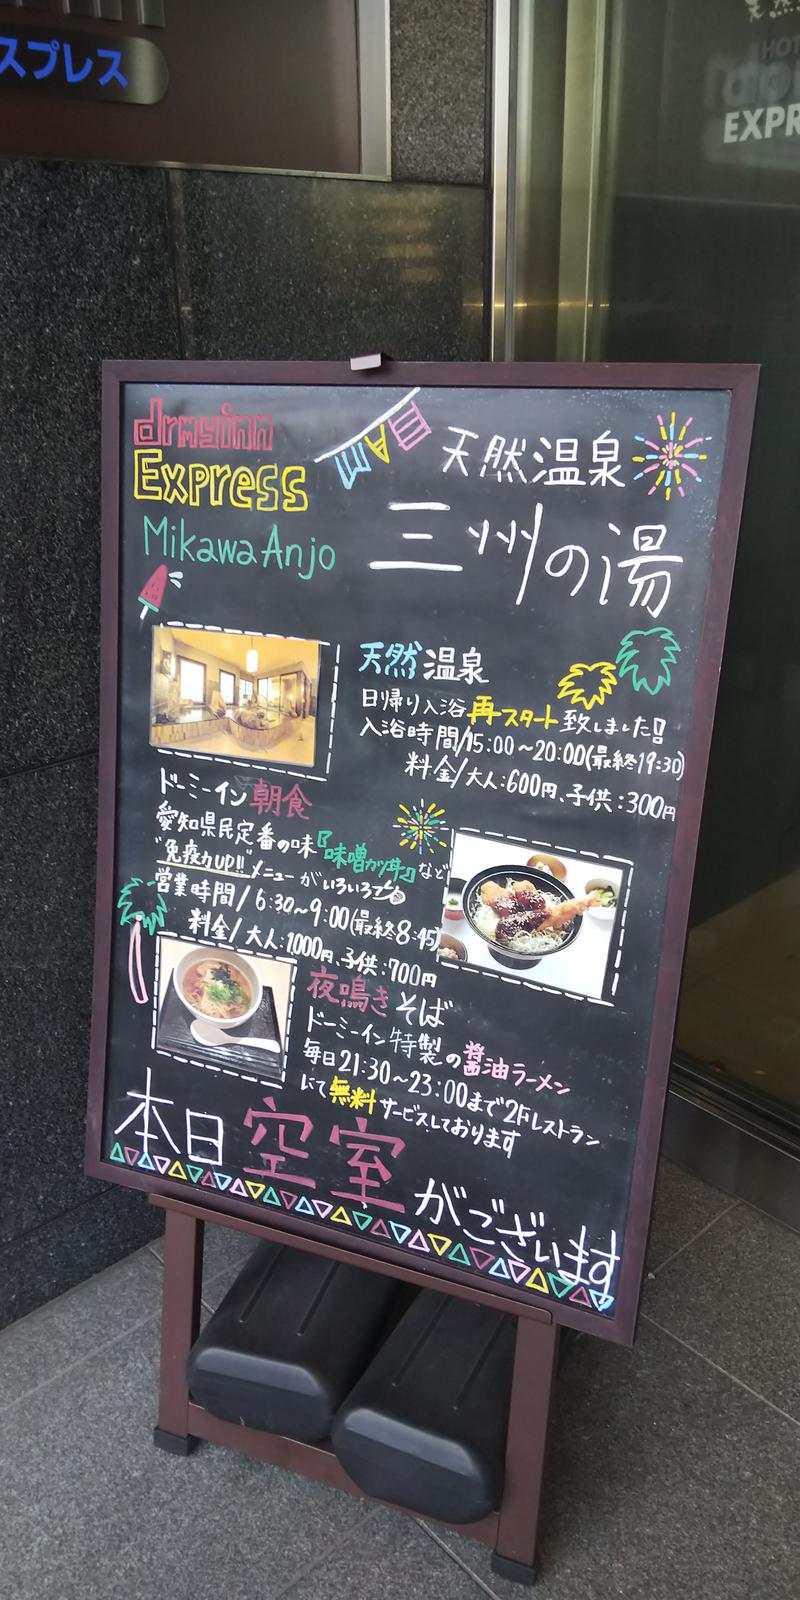 スプレス
HOT
EXPR
dormyinn
Express
Mikawa Anjo
天然温泉
三州の湯
天然温泉
日帰り入浴再スタート致しました!!
入浴時間/15:00~20:00(最終19:30)
料金/大人:600円、子供:300円
ドーミーイン朝食
愛知県民定番の味『味噌カツ丼』など
"免疫力UP!!メニューがいろいろ
営業時間/6:30~9:00(最終8:45)
料金/大人:1000円、子供:700円
夜鳴きそば
ドーミーイン特製の醤油ラーメン
毎日21:30~23:00まで2Fレストラン
にて無料サービスしております
本日空室がございます